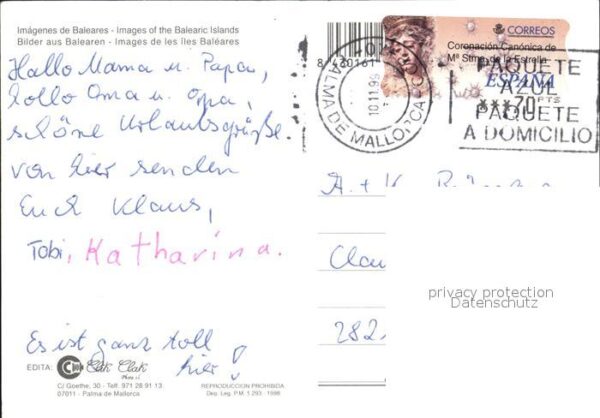 Imágenes de Baleares - Images of the Balearic Islands
Bilder aus Balearen - Images de les îles Baléares
Hallo Mama u. Papa,
hollo Oma u. Opa,
schöne Urlaubsgrüße
von hier senden
Euch Klaus,
Tobi, Katharina.
Es ist ganz toll
hier!
EDITA: Clak Clak
C/ Goethe, 30 - Telf. 971 28 91 13
07011 - Palma de Mallorca
REPRODUCCION PROHIBIDA
Dep. Leg. P.M. 1 293 - 1998
8 430161
CORREOS
Coronación Canónica de
Mª Stma. de la Estrella
ESPAÑA
***70 PTS
PALMA DE MALLORCA
10.11.99
PAQUETE
AZUL
PAQUETE
A DOMICILIO
A + K
Clau
282
privacy protection
Datenschutz